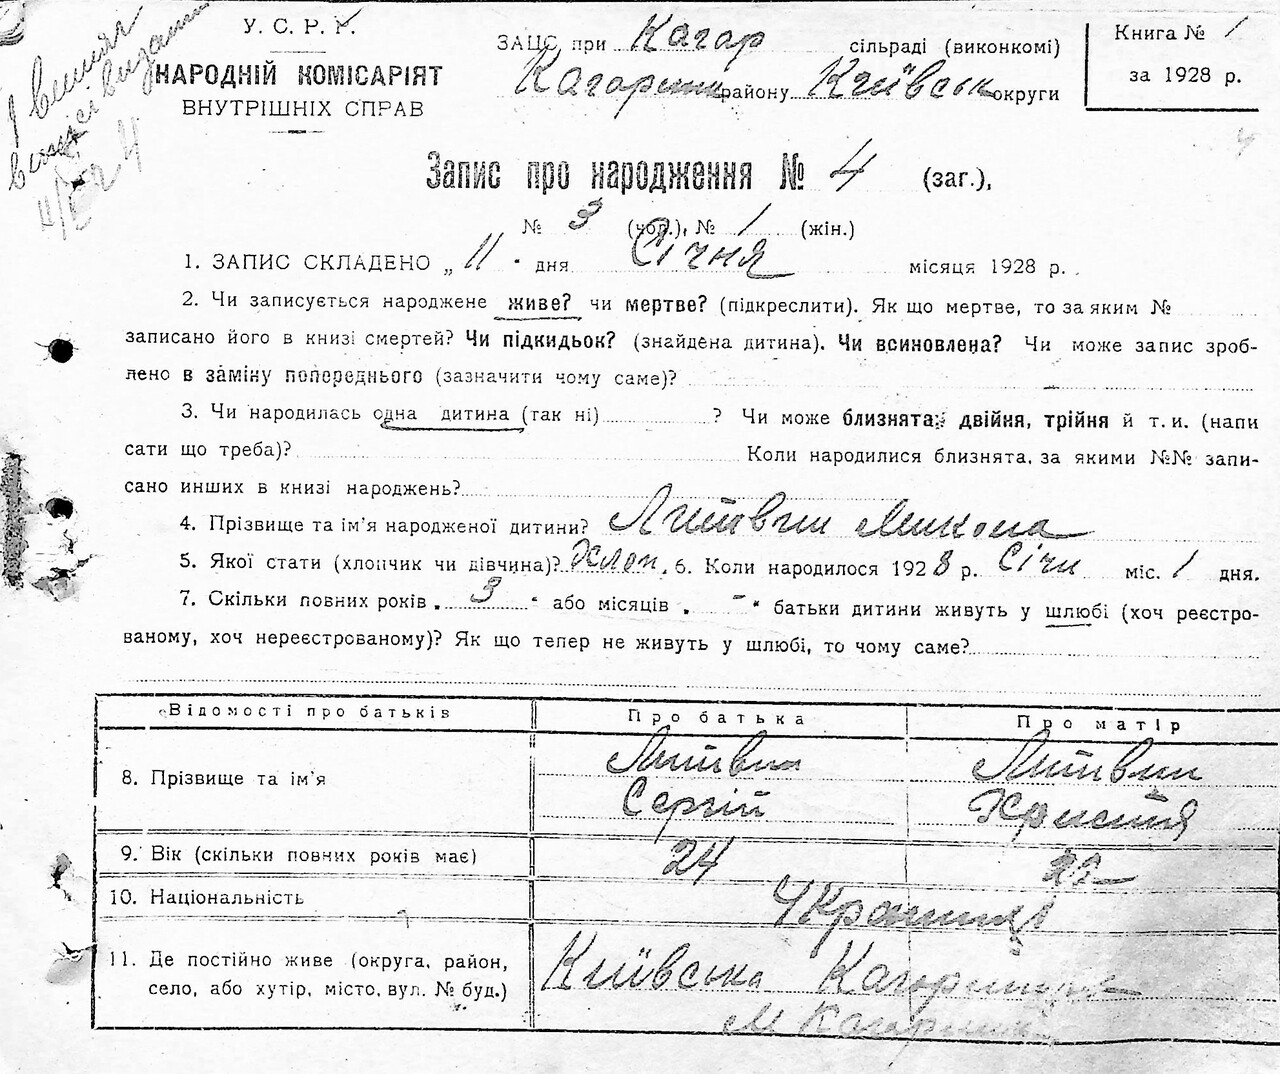 У. С. Р. Р.
НАРОДНІЙ КОМІСАРІЯТ
ВНУТРІШНІХ СПРАВ
ЗАЦС при Кагар сільраді (виконкомі)
Кагарлиц району Київськ округи
Книга № 1
за 1928 р.
4
Запис про народження № 4 (заг.),
№ 3 (чол.), № 1 (жін.)
1. ЗАПИС СКЛАДЕНО „ 11 " дня Січня місяця 1928 р.
2. Чи записується народжене живе? чи мертве? (підкреслити). Як що мертве, то за яким №
записано його в книзі смертей? Чи підкидьок? (знайдена дитина). Чи всиновлена? Чи може запис зроб-
лено в заміну попереднього (зазначити чому саме)?
3. Чи народилась одна дитина (так ні) ? Чи може близнята: двійня, трійня й т. и. (напи
сати що треба)? Коли народилися близнята, за якими №№ запи-
сано инших в книзі народжень?
4. Прізвище та ім'я народженої дитини? Литвин Микола
5. Якої стати (хлопчик чи дівчина)? Хлоп. 6. Коли народилося 1928 р. Січн міс. 1 дня.
7. Скільки повних років „ 3 " або місяців „ - " батьки дитини живуть у шлюбі (хоч реєстро-
ваному, хоч нереєстрованому)? Як що тепер не живуть у шлюбі, то чому саме?
Відомості про батьків Про батька Про матір
8. Прізвище та ім'я Литвин Сергій Литвин Христия
9. Вік (скільки повних років має) 24
10. Національність Українці
11. Де постійно живе (округа, район, Київська Кагарлицьк
село, або хутір, місто, вул. № буд.) м Кагарлик